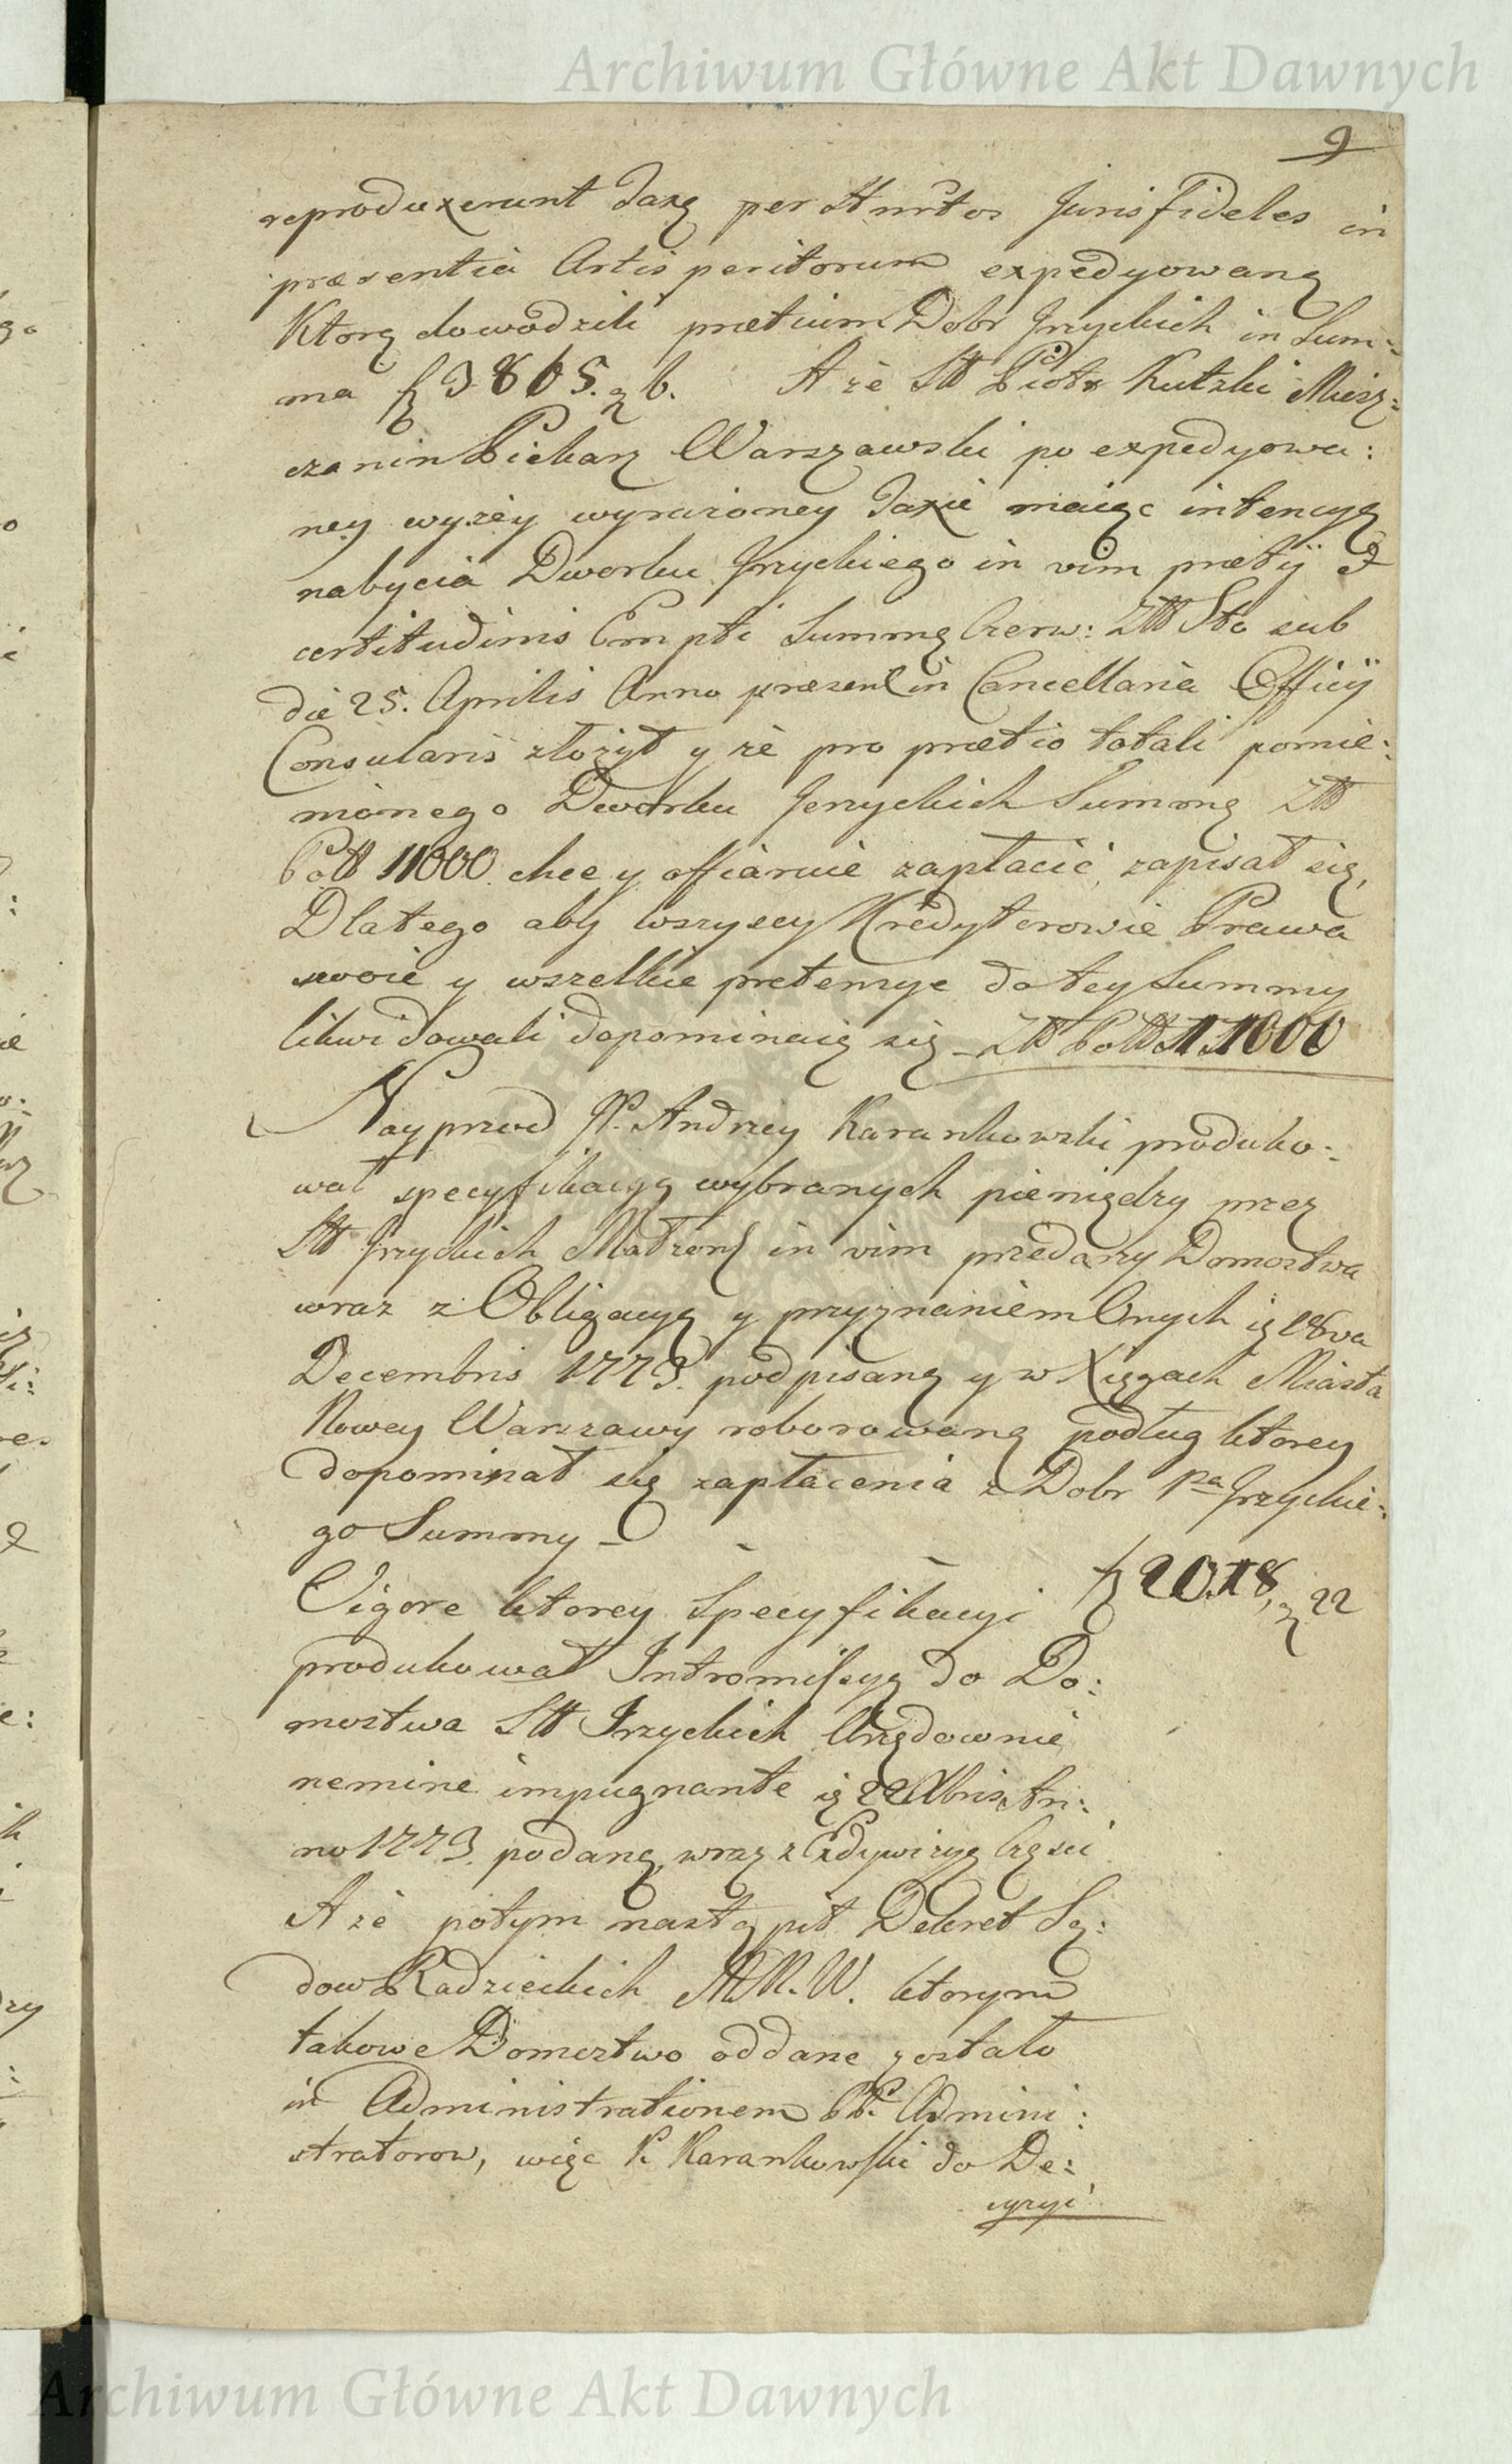 Archiwum Główne Akt Dawnych
9
reproduxerunt Taxę per Juris fideles in
præsentia Artis peritorum expedyowaną
Ktorą dowodzili prætium Dobr Jrzyckich in Sum:
ma f 3865. g 6. A że Stt Piotr Kutzki Miesz:
czanin Piekarz Warszawski po expedyowa:
ney wyżey wyrażoney Taxie maiąc intencyą
nabycia Dworku Jrzyckiego in vim prætij &
certitudinis Empti Summę Czerw: Ztt Sto sub
die 25. Aprilis Anno præsen in Cancellaria Officij
Consularis złożył y że pro prætio totali pomie:
nionego Dworku Jerzyckich Summę Ztt
Poll 11000 chce y offiaruie zapłacić, zapisał się,
Dlatego aby wszyscy Kredytorowie Prawa
swoie y wszelkie pretensye do tey Summy
likwidowali dopominaią się - Ztt Poll 11000
Nayprzod JP. Andrzey Karankowski produko:
wał specyfikacyą wybranych pieniędzy przez
Stt Jrzyckich Małżonk in vim przedarzy Domostwa
wraz z Obligacyą y przyznaniem Onych ig 18va
Decembris 1773. podpisaną y w Xięgach Miasta
Nowey Warszawy roborowaną podług ktorey
dopominał się zapłacenia z Dobr Pa Jrzyckie:
go Summy - f 2018, g 22
Vigore ktorey Specyfikacyi
produkował Intromissyą do Do:
mostwa Stt Jrzyckich Urzędownie
nemine impugnante ig 22 Xbris An:
no 1773. podaną, wraz z Exdywizyą Części
A że potym nastąpił Dekret Są:
dow Radzieckich M.N.W. ktorym
takowe Domostwo oddane zostało
in Administrationem PP. Admini:
stratorow, więc P. Karankowski do De:
cyzyi
Archiwum Główne Akt Dawnych